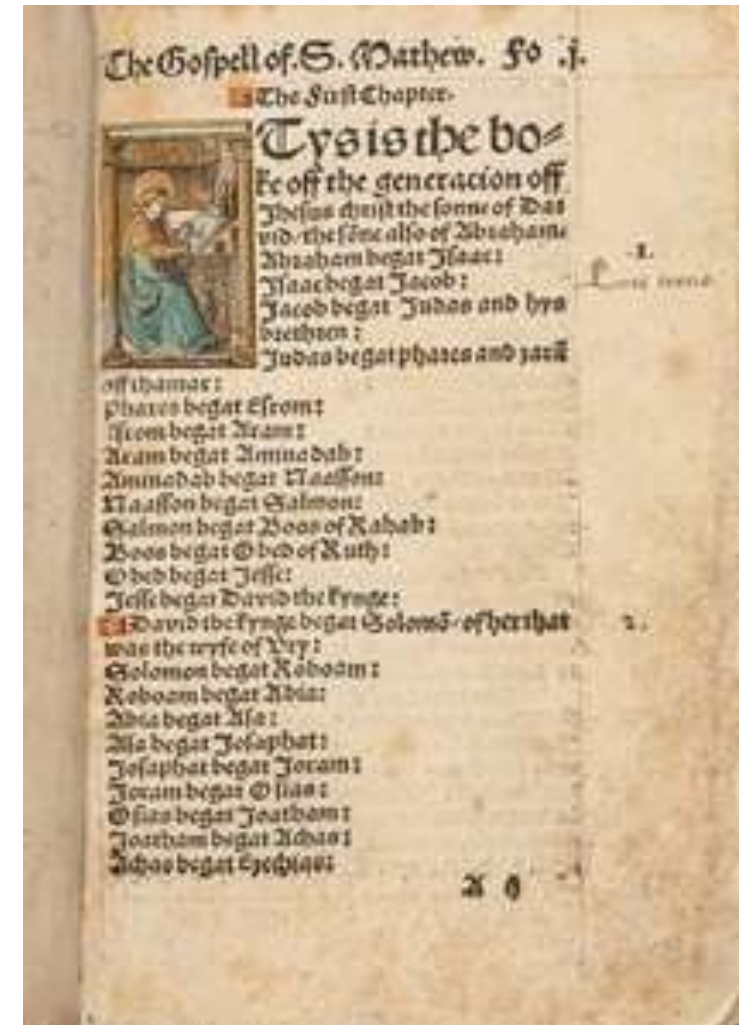 The Gospell of. S. Mathew. Fo .j.
The First Chapter.
Tys is the bo⸗
ke off the generacion off
Jhesus christ the sonne of Da⸗
vid/ the sōne also of Abraham.
Abraham begat Isaac:
Isaac begat Jacob:
Jacob begat Judas and hys
brethren:
Judas begat phares and zarā
off thamar:
Phares begat Esrom:
Esrom begat Aram:
Aram begat Aminadab:
Aminadab begat Naasson:
Naasson begat Salmon:
Salmon begat Boos of Rahab:
Boos begat Obed of Ruth:
Obed begat Jesse:
Jesse begat David the kynge:
David the kynge begat Solomō/ of her that
was the wyfe of Vry:
Solomon begat Roboam:
Roboam begat Abia:
Abia begat Asa:
Asa begat Josaphat:
Josaphat begat Joram:
Joram begat Osias:
Osias begat Joatham:
Joatham begat Achas:
Achas begat Ezechias:
A ij
.1.
2.